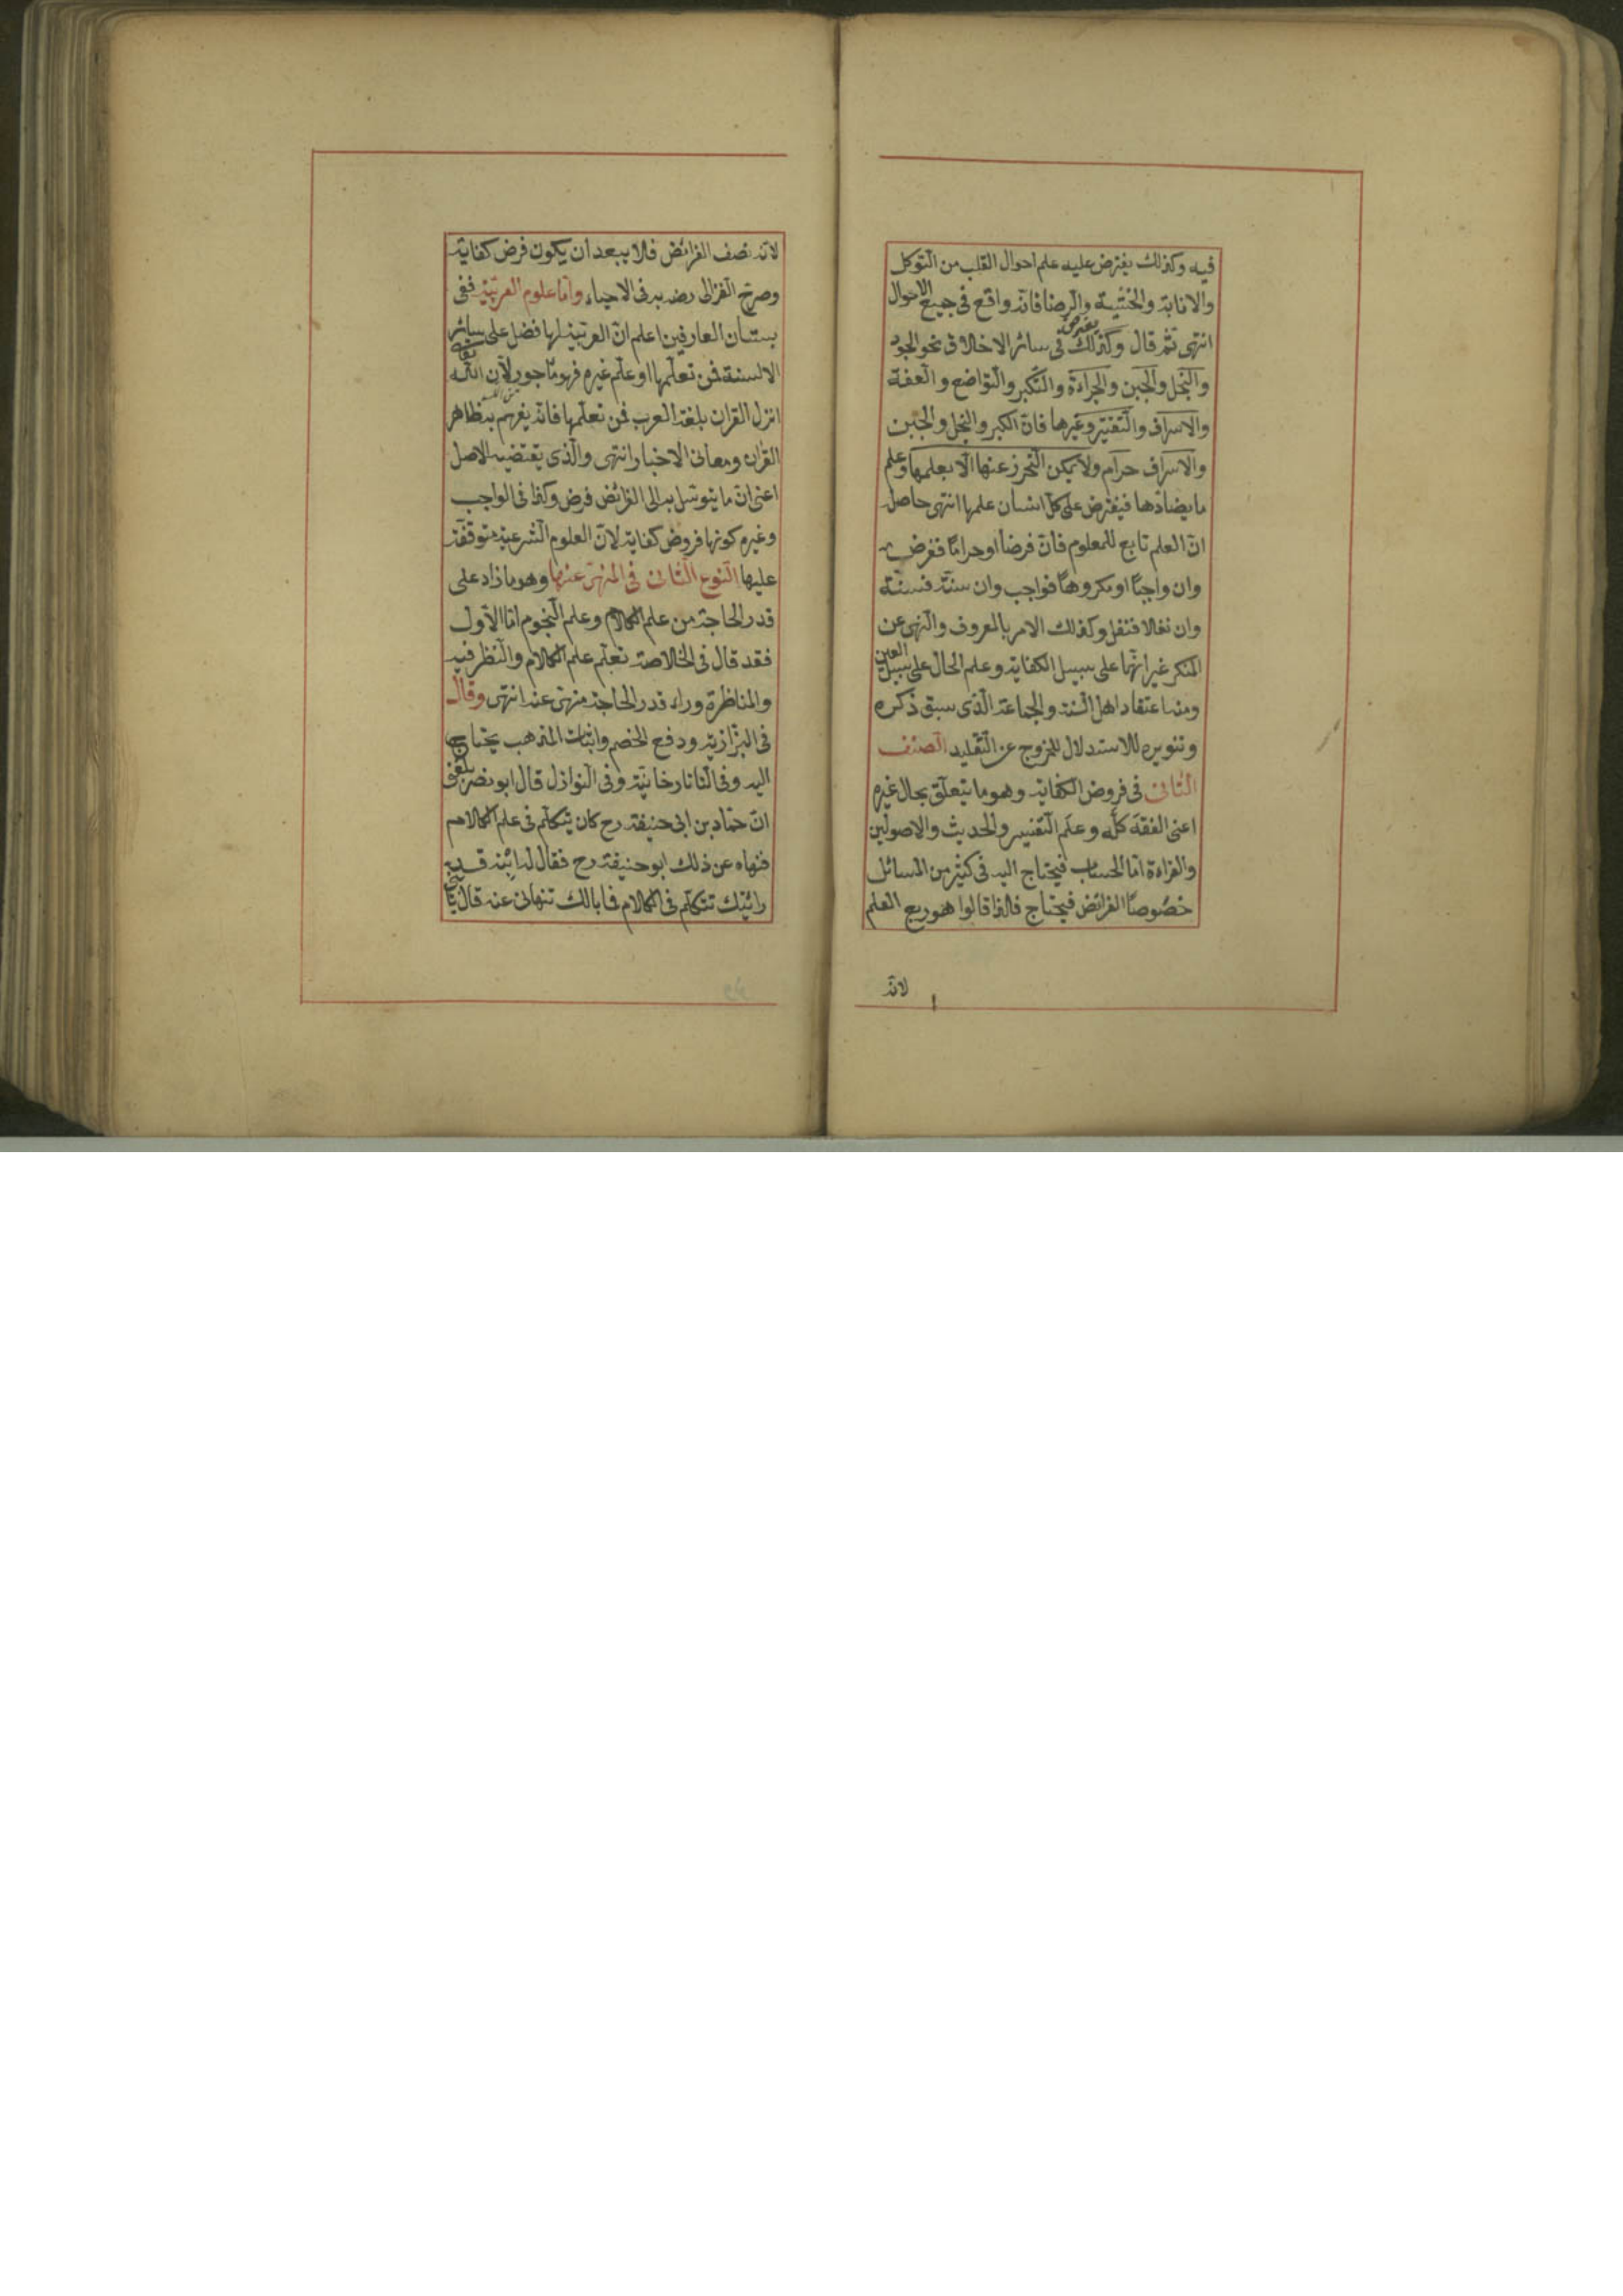 فيه وكذلك يفترض عليه علم احوال القلب من التوكل
والانابة والخشية والرضا فانه واقع في جميع الاحوال
انتهى ثم قال وكذلك يفترض في سائر الاخلاق نحو الجود
والبخل والجبن والجراءة والتكبر والتواضع والعفة
والاسراف والتقتير وغيرها فان الكبر والبخل والجبن
والاسراف حرام ولا يمكن التحرز عنها الا بعلمها وعلم
ما يضادها فيفترض على كل انسان علمها انتهى حاصل
ان العلم تابع للمعلوم فان فرضا او حراما ففرض
وان واجبا او مكروها فواجب وان سنة فسنة
وان نفلا فنفل وكذلك الامر بالمعروف والنهى عن
المنكر غير انها على سبيل الكفاية وعلم الحال على سبيل العين
ومنه اعتقاد اهل السنة والجماعة الذى سبق ذكره
وتنويره للاستدلال للخروج عن التقليد الصنف
الثانى فى فروض الكفاية وهو ما يتعلق بحال غيره
اعنى الفقه كله وعلم التفسير والحديث والاصولين
والقراءة اما الحساب فيحتاج اليه فى كثير من المسائل
خصوصا الفرائض فيحتاج فلذا قالوا هو ربع العلم
لانه
لانه نصف الفرائض فلا يبعد ان يكون فرض كفاية
وصرح الغزالى رضه به فى الاحياء واما علوم العربية ففى
بستان العارفين اعلم ان العربية لها فضل على سائر
الالسنة فمن تعلمها او علم غيره فهو مأجور لان الله تعالى
انزل القران بلغة العرب فمن تعلمها فانه يفهم به ظاهر
القران ومعانى الاخبار انتهى والذى يقتضيه الاصل
اعنى ان ما يتوسل به الى الفرائض فرض وكذا فى الواجب
وغيره كونها فروض كفاية لان العلوم الشرعية متوقفة
عليها النوع الثانى فى المنهى عنها وهو ما زاد على
قدر الحاجة من علم الكلام وعلم النجوم اما الاول
فقد قال فى الخلاصة تعلم علم الكلام والنظر فيه
والمناظرة وراء قدر الحاجة منهى عنه انتهى وقال
فى البزازية ودفع الخصم واثبات المذهب يحتاج
اليه وفى التاتارخانية وفى النوازل قال ابو نصر بلغنى
ان حماد بن ابى حنيفة رح كان يتكلم فى علم الكلام
فنهاه عن ذلك ابو حنيفة رح فقال له ابنه قد
رائيتك تتكلم فى الكلام فما بالك تنهانى عنه قال يا